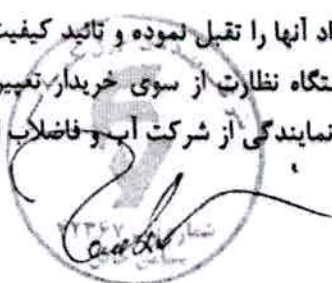 اد آنها را تقبل نموده و تائید کیفیت
ستگاه نظارت از سوی خریدار تعیین
نمایندگی از شرکت آب و فاضلاب
شما